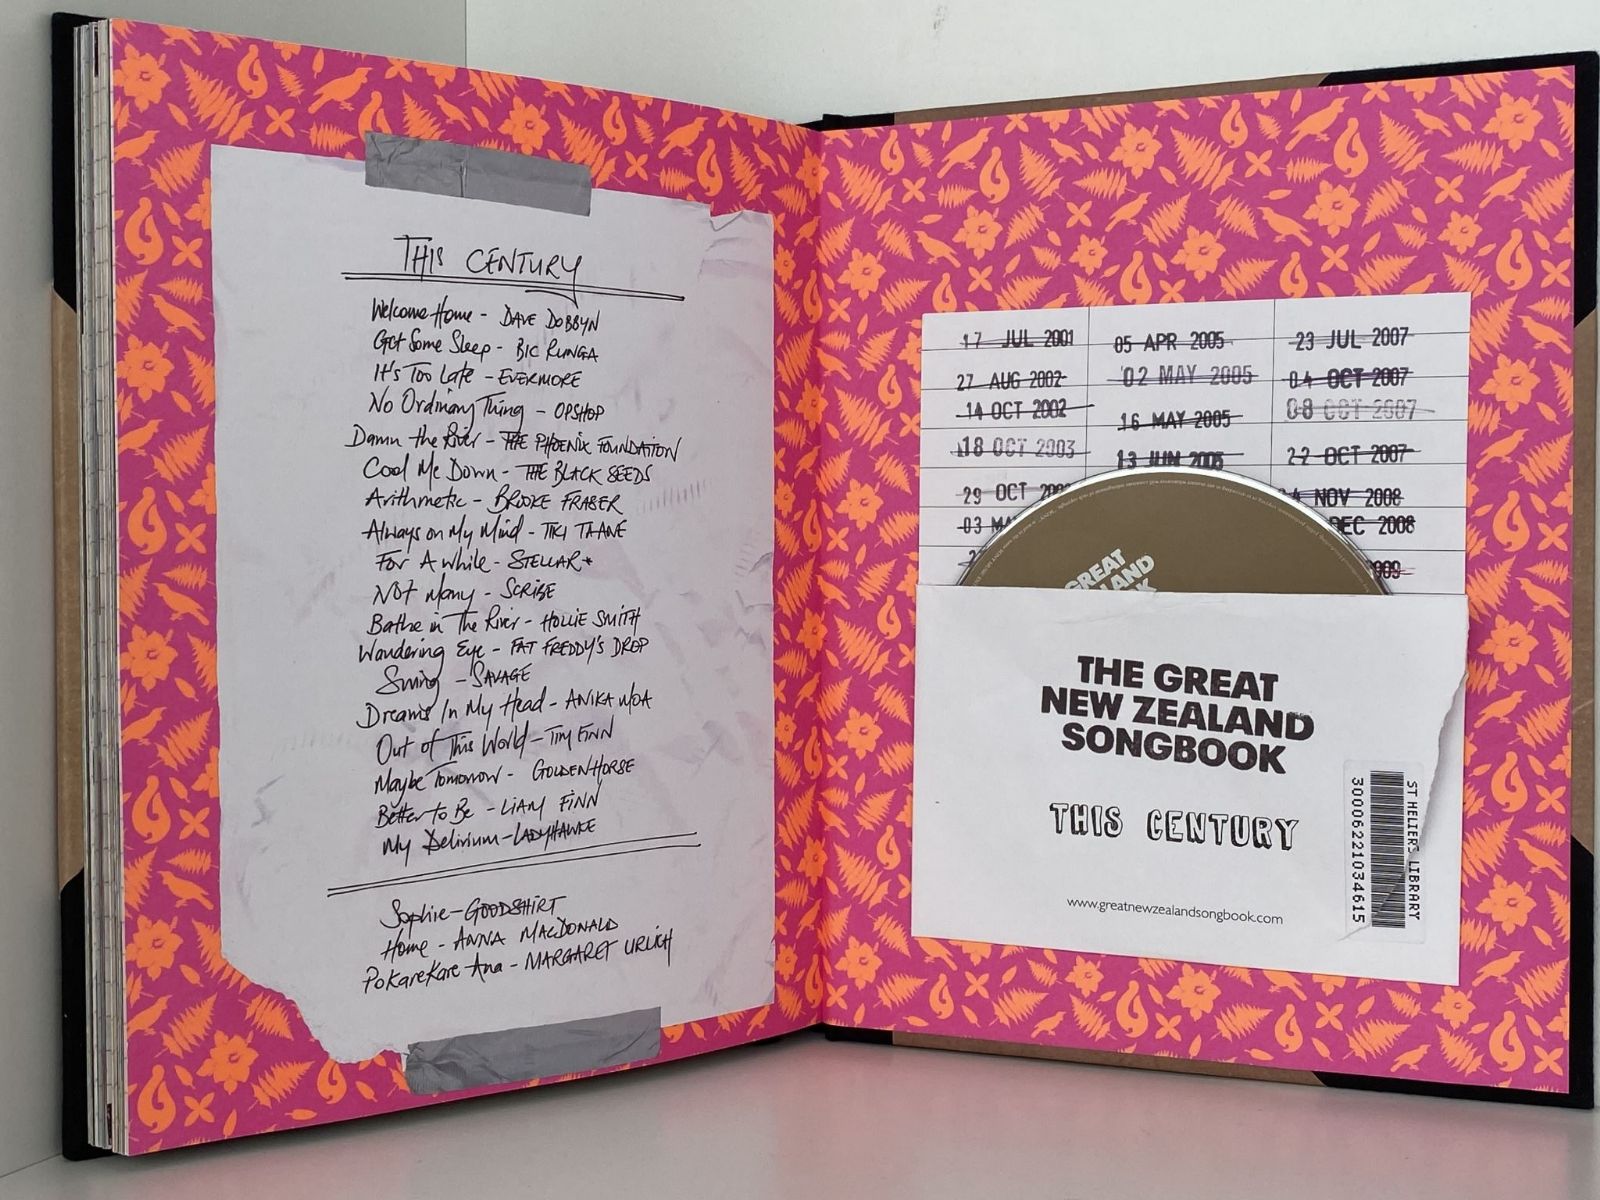 THIS CENTURY
Welcome Home - DAVE DOBBYN
Get Some Sleep - BIC RUNGA
It's Too Late - EVERMORE
No Ordinary Thing - OPSHOP
Damn the River - THE PHOENIX FOUNDATION
Cool Me Down - THE BLACK SEEDS
Arithmetic - BROOKE FRASER
Always on My Mind - TIKI TAANE
For A While - STELLAR*
Not Many - SCRIBE
Bathe in The River - HOLLIE SMITH
Wandering Eye - FAT FREDDY'S DROP
Swing - SAVAGE
Dreams In My Head - ANIKA MOA
Out of This World - TIM FINN
Maybe Tomorrow - GOLDENHORSE
Better to Be - LIAM FINN
My Delirium - LADYHAWKE
Sophie - GOODSHIRT
Home - ANNA MACDONALD
PoKareKare Ana - MARGARET URLICH
17 JUL 2001
27 AUG 2002
14 OCT 2002
18 OCT 2003
29 OCT
03
05 APR 2005
02 MAY 2005
16 MAY 2005
13 JUN 2005
23 JUL 2007
04 OCT 2007
08 OCT 2007
22 OCT 2007
NOV 2008
DEC 2008
GREAT
THE GREAT
NEW ZEALAND
SONGBOOK
THIS CENTURY
www.greatnewzealandsongbook.com
ST HELIERS LIBRARY
30006221034615